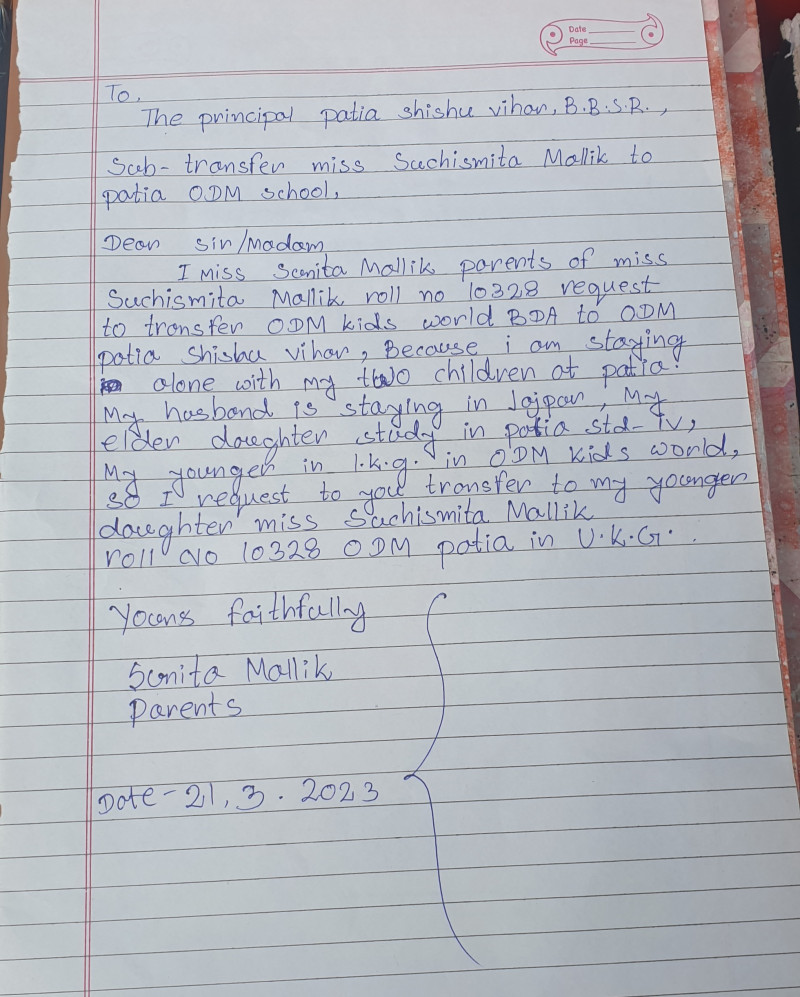 Date
Page
To,
The principal patia shishu vihar, B.B.S.R.,
Sub- transfer miss Suchismita Mallik to
patia ODM school,
Dear sir/Madam
I Miss Sunita Mallik parents of miss
Suchismita Mallik roll no 10328 request
to transfer ODM kids world BDA to ODM
patia Shishu vihar, Because i am staying
alone with my two children at patia.
My husband is staying in Jajpur, My
elder daughter study in patia std- IV,
My younger in l.k.g. in ODM kids world,
so I request to you transfer to my younger
daughter miss Suchismita Mallik
roll No 10328 ODM patia in U.K.G.
Yours faithfully
Sunita Mallik
Parents
Date - 21.3.2023